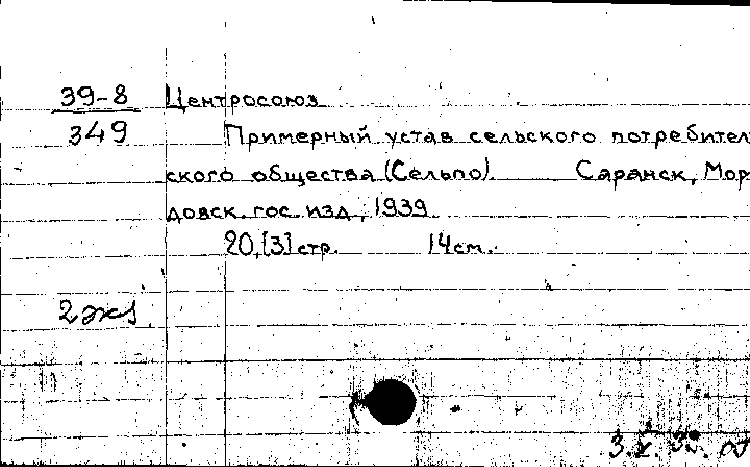 39-8 Центросоюз
349 Примерный устав сельского потребител
ского общества (Сельпо). Саранск, Мор
довск. гос. изд., 1939
20, [3] стр. 14 см.
2 экз.